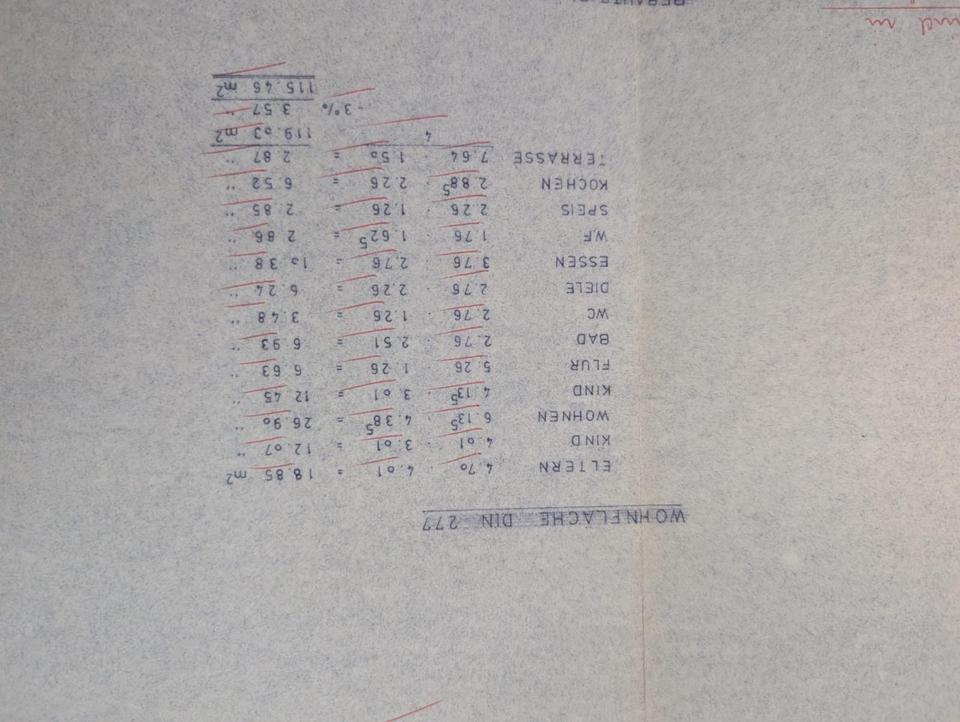 WOHNFLÄCHE DIN 277
ELTERN 4.70 · 4.01 = 18.85 m²
KIND 4.01 · 3.01 = 12.07 "
WOHNEN 6.13⁵ · 4.38⁵ = 26.90 "
KIND 4.13⁵ · 3.01 = 12.45 "
FLUR 5.26 · 1.26 = 6.63 "
BAD 2.76 · 2.51 = 6.93 "
WC 2.76 · 1.26 = 3.48 "
DIELE 2.76 · 2.26 = 6.24 "
ESSEN 3.76 · 2.76 = 10.38 "
W.F 1.76 · 1.62⁵ = 2.86 "
SPEIS 2.26 · 1.26 = 2.85 "
KOCHEN 2.88⁵ · 2.26 = 6.52 "
TERRASSE 7.64 · 1.50 = 2.87 "
4
119.03 m²
- 3% 3.57 "
115.46 m²
und m